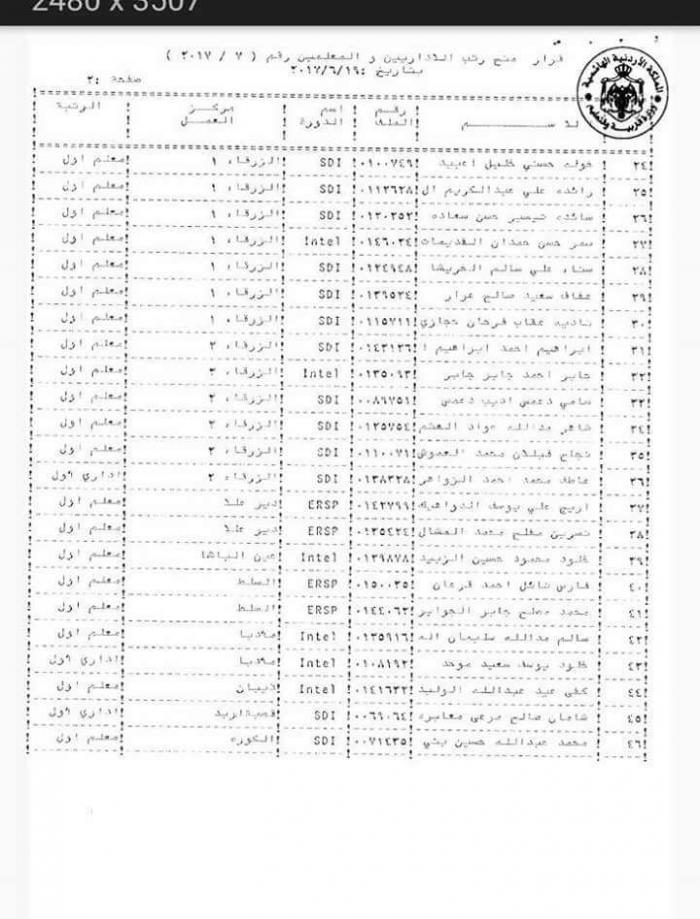 2480 x 3507
قرار منح رتب الاداريين و المعلمين رقم ( ٧ / ٢٠١٧ )
بتاريخ :٢٠١٧/٦/١٩
صفحة :٢
الاســـــم رقم الملف اسم الدورة مركز العمل الرتبة
٢٤ خوله حسني خليل اعبيد ٠١٠٠٧٤٦ SDI الزرقاء ١ معلم اول
٢٥ رائده علي عبدالكريم ال ٠١١٢٦٢٨ SDI الزرقاء ١ معلم اول
٢٦ سائده تيسير حسن سعاده ٠١٢٠٢٥٢ SDI الزرقاء ١ معلم اول
٢٧ سمر حسن حمدان القديمات ٠١٤٦٠٢٤ Intel الزرقاء ١ معلم اول
٢٨ سناء علي سالم الخريشا ٠١٢٤٩٤٨ SDI الزرقاء ١ معلم اول
٢٩ عفاف سعيد صالح عرار ٠١٣٩٥٢٤ SDI الزرقاء ١ معلم اول
٣٠ ناديه عقاب فرحان حجازي ٠١١٥٧١١ SDI الزرقاء ١ معلم اول
٣١ ابراهيم احمد ابراهيم ا SDI الزرقاء ٢ معلم اول
٣٢ جابر احمد جابر جابر ٠١٣٥٠٩٣ Intel الزرقاء ٢ معلم اول
٣٣ سامي دعمس اديب دعمس ٠٠٨٩٧٥٦ SDI الزرقاء ٢ معلم اول
٣٤ شاهر عبدالله عواد ٠١٢٥٧٥٤ SDI الزرقاء ٢ معلم اول
٣٥ نجاح فيلان محمد العموش ٠١١٠٠٧١ SDI الزرقاء ٢ معلم اول
٣٦ عاطف محمد احمد الزواهر ٠١٣٨٣٢٨ SDI الزرقاء ٢ اداري اول
٣٧ اريج علي يوسف ٠١٤٢٧٩٩ ERSP دير علا معلم اول
٣٨ نسرين مفلح محمد المشال ٠١٣٥٤٢٤ ERSP دير علا معلم اول
٣٩ خلود محمود حسين الزبيد ٠١٣٩٨٧٨ Intel عين الباشا معلم اول
٤٠ فارس شائل احمد فرعان ٠١٥٠٠٣٥ ERSP السلط معلم اول
٤١ محمد مصلح جابر الجوابر ٠١٤٤٠٦٣ ERSP السلط معلم اول
٤٢ سالم عبدالله سليمان اله ٠١٣٥٩١٦ Intel مادبا معلم اول
٤٣ خلود يوسف سعيد موحد ٠١٠٨١٩٢ Intel مادبا اداري اول
٤٤ كفى عيد عبدالله الوليد ٠١٤١٦٣٢ Intel ذيبان معلم اول
٤٥ شامان صالح مرعي معابره ٠٠٦٩٠٦٤ SDI قصبة اربد اداري اول
٤٦ محمد عبدالله حسين بني ٠٠٧١٤٣٥ SDI الكوره معلم اول